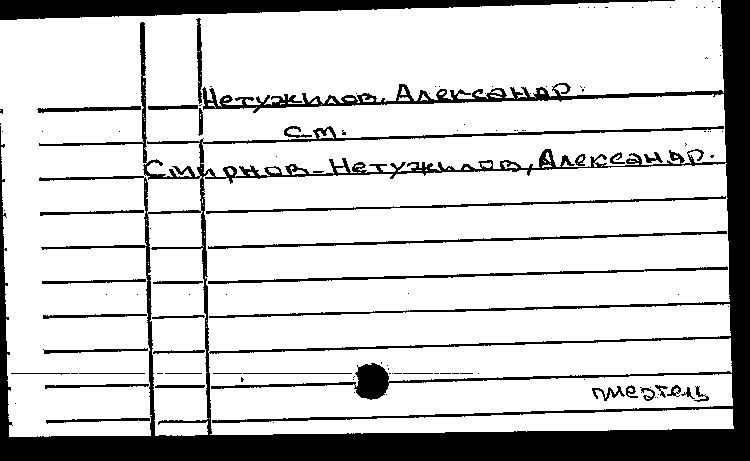 Нетужилов, Александр
см.
Смирнов-Нетужилов, Александр.
писатель